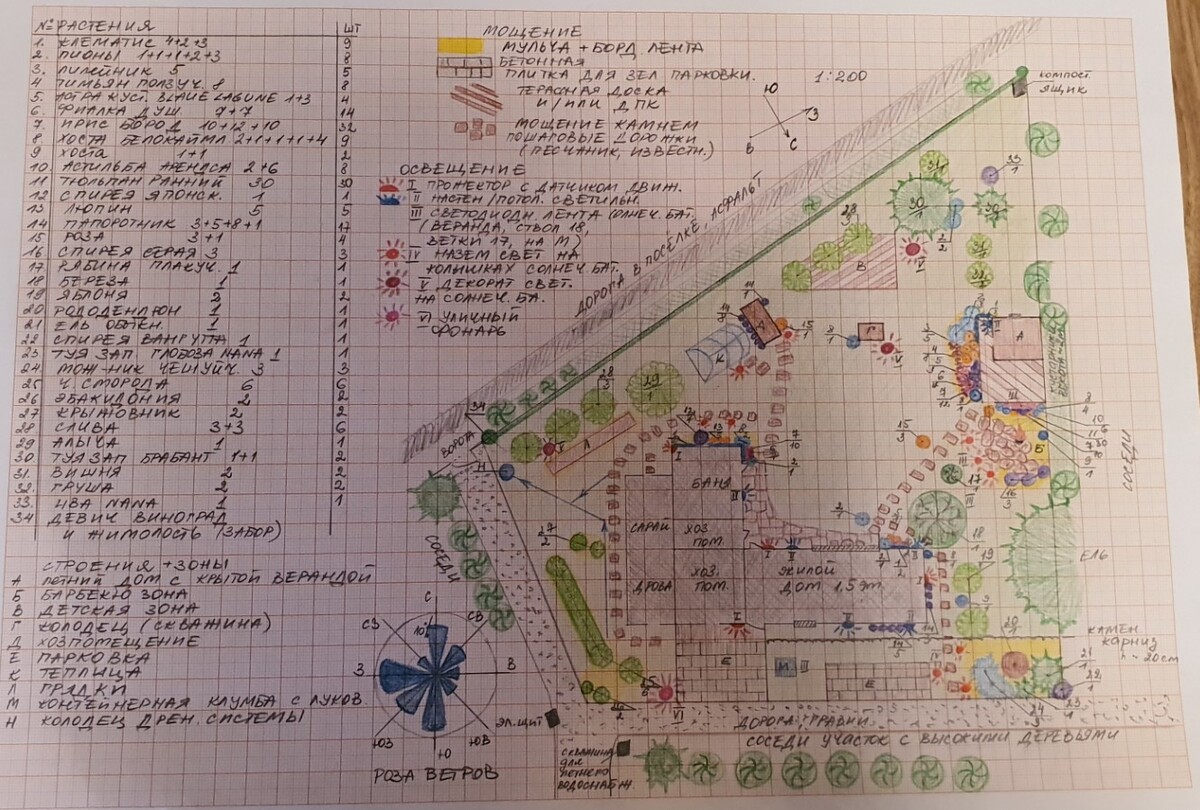 № РАСТЕНИЯ ШТ
1. КЛЕМАТИС 4+2+3 9
2. ПИОНЫ 1+1+1+2+3 8
3. ЛИЛЕЙНИК 5 5
4 ТИМЬЯН ПОЛЗУЧ. 8 8
5. АСТРА КУСТ. BLAUE LAGUNE 1+3 4
6. ФИАЛКА ДУШ 7+7 14
7. ИРИС БОРОД 10+12+10 32
8. ХОСТА БЕЛОКАЙМЛ 2+1+1+1+4 9
9 ХОСТА 1+1 2
10 АСТИЛЬБА АРЕНДСА 2+6 8
11 ТЮЛЬПАН РАННИЙ 30 30
12 СПИРЕЯ ЯПОНСК. 1 1
13 ЛЮПИН 5 5
14 ПАПОРОТНИК 3+5+8+1 17
15 РОЗА 3+1 4
16 СПИРЕЯ СЕРАЯ 3 3
17 РЯБИНА ПЛАКУЧ. 1 1
18 БЕРЕЗА 1 1
19 ЯБЛОНЯ 2 2
20 РОДОДЕНДРОН 1 1
21 ЕЛЬ ОБЫКН. 1 1
22 СПИРЕЯ ВАНГУТТА 1 1
23 ТУЯ ЗАП. ГЛОБОЗА NANA 1 1
24 МОЖ-НИК ЧЕШУЙЧ. 3 3
25 Ч. СМОРОДА 6 6
26 2 2
27 КРЫЖОВНИК 2 2
28 СЛИВА 3+3 6
29 АЛЫЧА 1 1
30 ТУЯ ЗАП БРАБАНТ 1+1 2
31 ВИШНЯ 2 2
32 ГРУША 2 2
33. ИВА NANA 1 1
34 ДЕВИЧ ВИНОГРАД
И ЖИМОЛОСТЬ (ЗАБОР)
СТРОЕНИЯ + ЗОНЫ
А ЛЕТНИЙ ДОМ С КРЫТОЙ ВЕРАНДОЙ
Б БАРБЕКЮ ЗОНА
В ДЕТСКАЯ ЗОНА
Г КОЛОДЕЦ (СКВАЖИНА)
Д ХОЗПОМЕЩЕНИЕ
Е ПАРКОВКА
К ТЕПЛИЦА
Л ГРЯДКИ
М КОНТЕЙНЕРНАЯ КЛУМБА С ЛУКОВ
Н КОЛОДЕЦ ДРЕН. СИСТЕМЫ
МОЩЕНИЕ
МУЛЬЧА + БОРД ЛЕНТА
БЕТОННАЯ
ПЛИТКА ДЛЯ ЗЕЛ ПАРКОВКИ.
ТЕРАСНАЯ ДОСКА
И/ИЛИ ДПК
МОЩЕНИЕ КАМНЕМ
ПОШАГОВЫЕ ДОРОЖКИ
(ПЕСЧАНИК, ИЗВЕСТН.)
1:200
Ю
З
В
С
ОСВЕЩЕНИЕ
I ПРОЖЕКТОР С ДАТЧИКОМ ДВИЖ.
II НАСТЕН/ПОТОЛ. СВЕТИЛЬН.
III СВЕТОДИОДН. ЛЕНТА СОЛНЕЧ. БАТ.
(ВЕРАНДА, СТВОЛ 18,
ВЕТКИ 17, НА М)
IV НАЗЕМ СВЕТ НА
КОЛЫШКАХ СОЛНЕЧ. БАТ.
V ДЕКОРАТ СВЕТ.
НА СОЛНЕЧ. БА.
VI УЛИЧНЫЙ
ФОНАРЬ
С
СЗ
СВ
10
З
В
ЮЗ
Ю
ЮВ
РОЗА ВЕТРОВ
КОМПОСТ.
ЯЩИК
ДОРОГА В ПОСЁЛКЕ, АСФАЛЬТ
34
ВОРОТА
Н
СОСЕДИ
В
А
Г
К
Д
Л
Б
БАНЯ
САРАЙ
ХОЗ
ПОМ.
ДРОВА
ХОЗ.
ПОМ.
ЖИЛОЙ
ДОМ 1,5 ЭТ.
Е
М
Е
ЕЛЬ
СОСЕДИ
КАМЕН.
КАРНИЗ
20 СМ
ЭЛ. ЩИТ
ДОРОГА, ГРАВИЙ
СОСЕДИ УЧАСТОК С ВЫСОКИМИ ДЕРЕВЬЯМИ
СКВАЖИНА
ДЛЯ
ЛЕТНЕГО
ВОДОСНАБЖ.